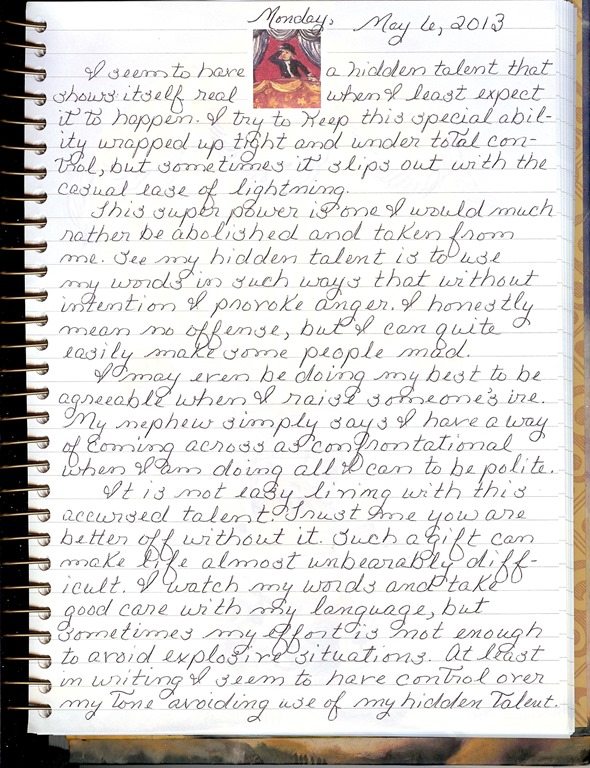 Monday, May 6, 2013
I seem to have a hidden talent that
shows itself real when I least expect
it to happen. I try to keep this special abil-
ity wrapped up tight and under total con-
trol, but sometimes it slips out with the
casual ease of lightning.
This super power is one I would much
rather be abolished and taken from
me. See my hidden talent is to use
my words in such ways that without
intention I provoke anger. I honestly
mean no offense, but I can quite
easily make some people mad.
I may even be doing my best to be
agreeable when I raise someone's ire.
My nephew simply says I have a way
of coming across as confrontational
when I am doing all I can to be polite.
It is not easy living with this
accursed talent. Trust me you are
better off without it. Such a gift can
make life almost unbearably diff-
icult. I watch my words and take
good care with my language, but
sometimes my effort is not enough
to avoid explosive situations. At least
in writing I seem to have control over
my tone avoiding use of my hidden talent.